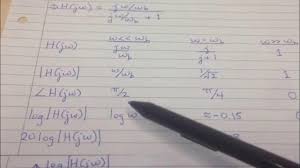 H(jω) = jω/ω_b
jω/ω_b + 1
ω << ω_b ω = ω_b ω >> ω_b
H(jω) jω/ω_b j/(j+1) 1
|H(jω)| ω/ω_b 1/√2 1
∠H(jω) π/2 π/4 0
log|H(jω)| log ω ≈ -0.15
20 log|H(jω)|